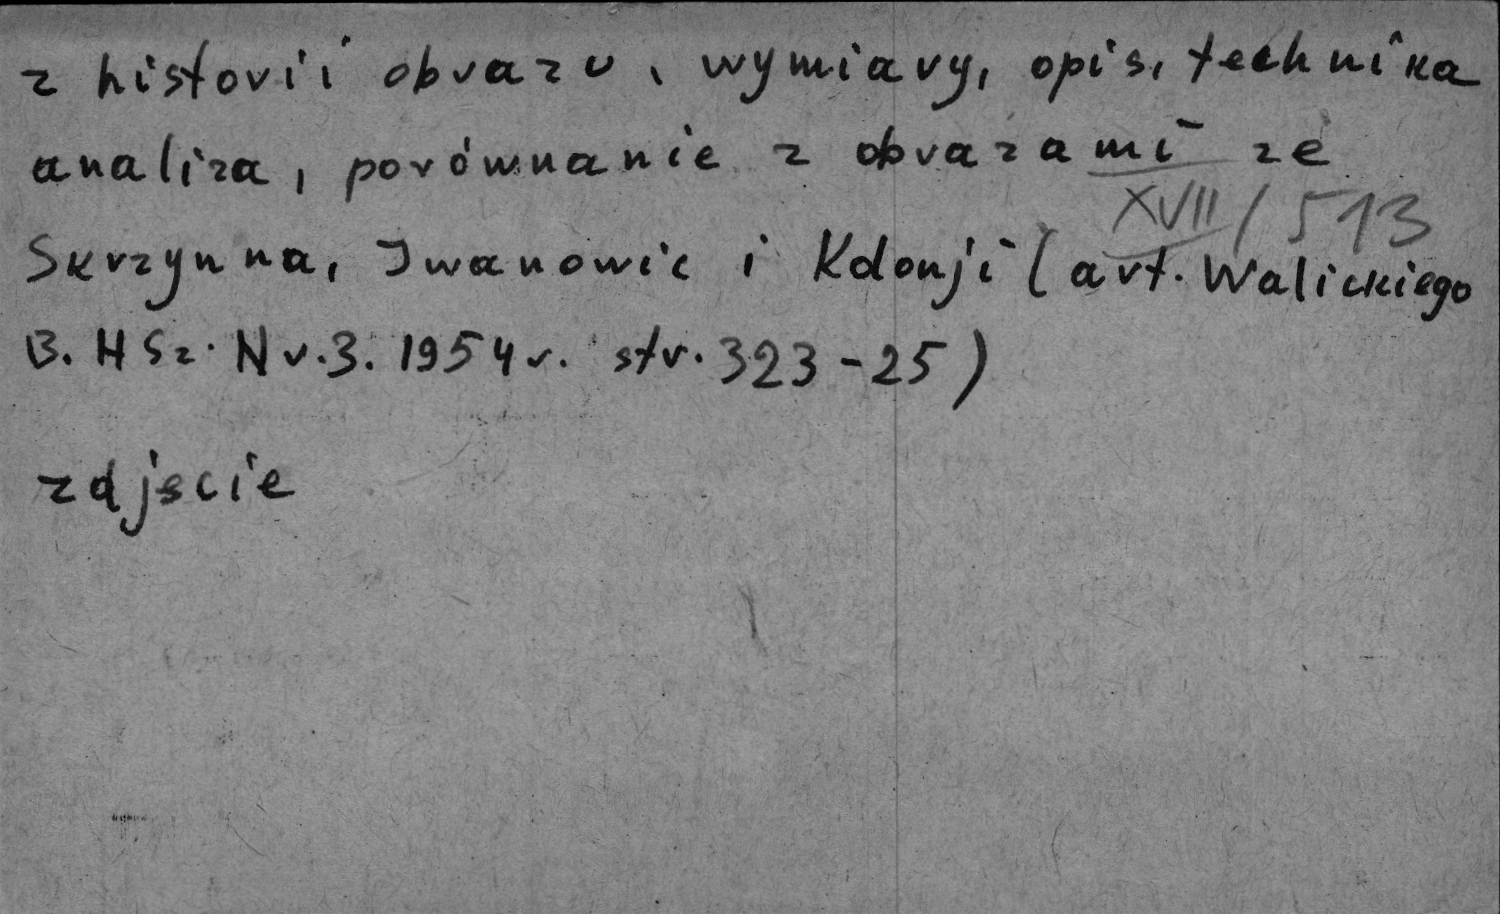 z historii obrazu, wymiary, opis, technika
analiza, porównanie z obrazami ze
XVII/513
Skrzynna, Iwanowic i Kdonji (art. Walickiego
B. H Sz. Nr. 3. 1954 r. str. 323-25)
zdjęcie